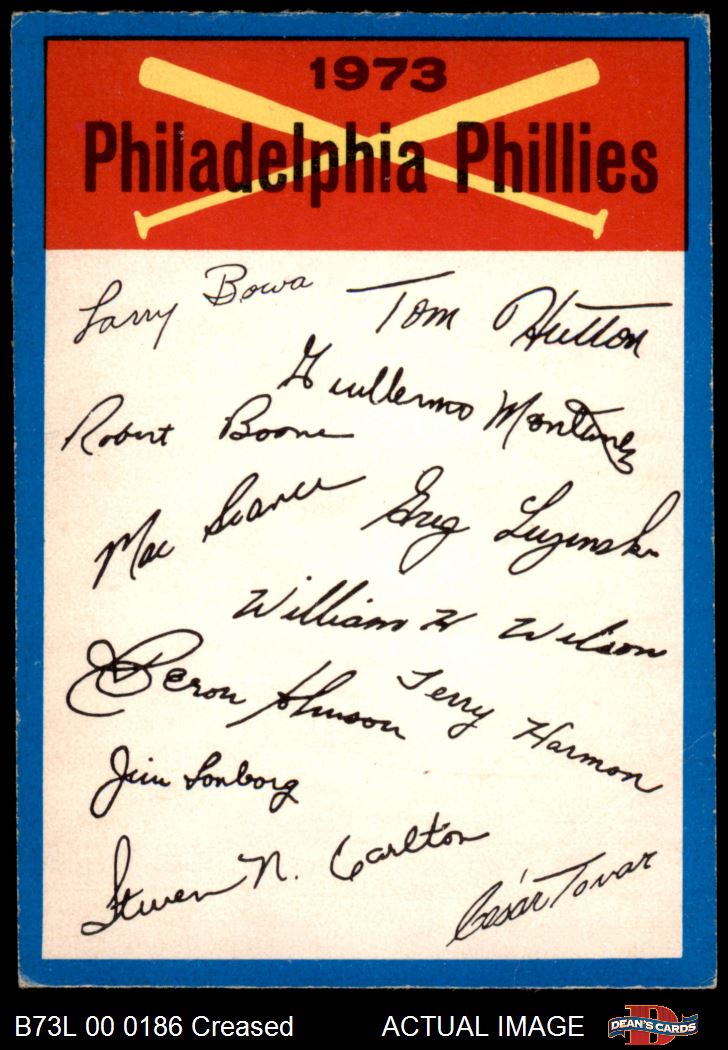 1973
Philadelphia Phillies
Larry Bowa
Tom Hutton
Guillermo Montanez
Robert Boone
Mac Scarce
Greg Luzinski
William H Wilson
Deron Johnson
Terry Harmon
Jim Lonborg
Steven N. Carlton
César Tovar
B73L 00 0186 Creased
ACTUAL IMAGE
D
DEAN'S CARDS